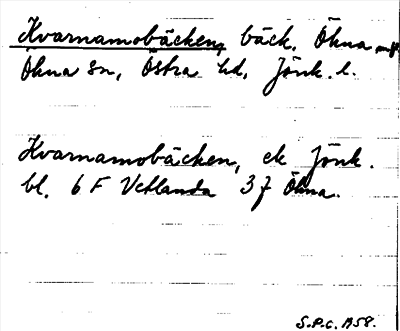 Kvarnamobäcken, bäck, Ökna
Ökna sn, Östra hd, Jönk. l.
Kvarnamobäcken, ek Jönk.
bl. 6 F Vetlanda 3 j Ökna.
S.P.C. A58.